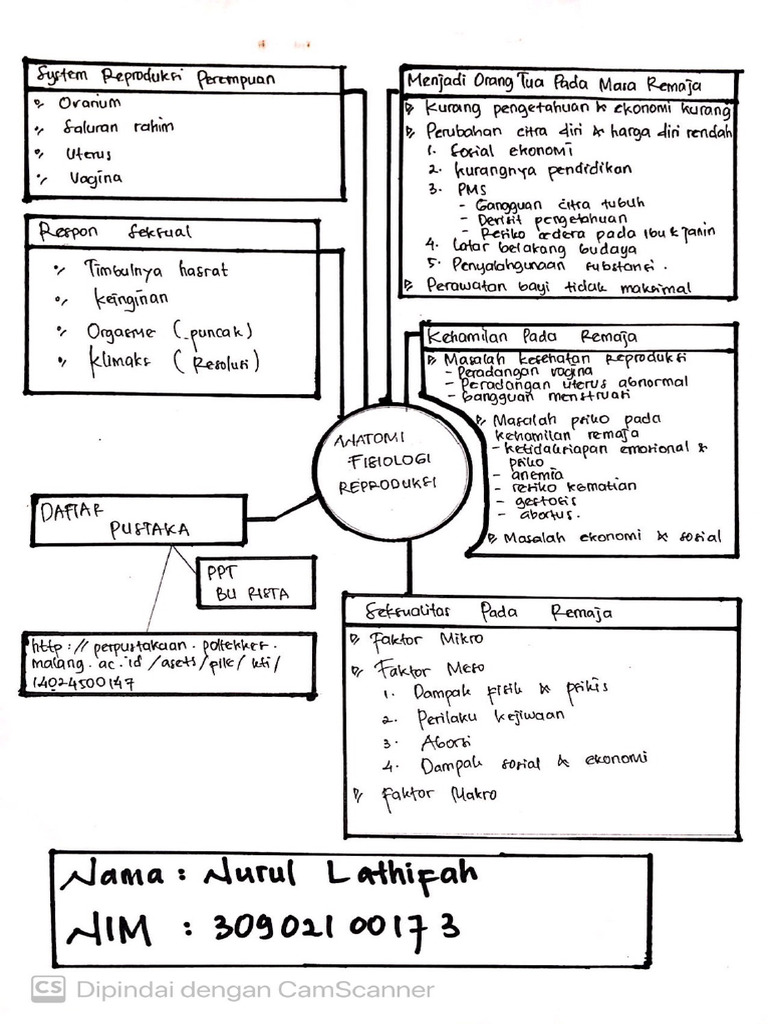 System Reproduksi Perempuan
Ovarium
Saluran rahim
Uterus
Vagina
Respon Seksual
Timbulnya hasrat
keinginan
Orgasme (puncak)
Klimaks (Resolusi)
DAFTAR
PUSTAKA
PPT
BU RISTA
http://perpustakaan.poltekkes-
malang.ac.id/asets/file/kti/
14024500147
ANATOMI
FISIOLOGI
REPRODUKSI
Menjadi Orang Tua Pada Masa Remaja
Kurang pengetahuan & ekonomi kurang
Perubahan citra diri & harga diri rendah
1. Sosial ekonomi
2. kurangnya pendidikan
3. PMS
- Gangguan citra tubuh
- Defisit pengetahuan
- Resiko cedera pada ibu & janin
4. Latar belakang budaya
5. Penyalahgunaan substansi.
Perawatan bayi tidak maksimal
Kehamilan Pada Remaja
Masalah kesehatan Reproduksi
- Peradangan vagina
- Peradangan uterus abnormal
- Gangguan menstruasi
Masalah psiko pada
kehamilan remaja
- ketidaksiapan emosional &
psiko
- anemia
- resiko kematian
- gestosis
- abortus.
Masalah ekonomi & sosial
Seksualitas Pada Remaja
Faktor Mikro
Faktor Meso
1. Dampak fisik & psikis
2. Perilaku kejiwaan
3. Aborsi
4. Dampak sosial & ekonomi
Faktor Makro
Nama : Nurul Lathifah
NIM : 30902100173
CS Dipindai dengan CamScanner